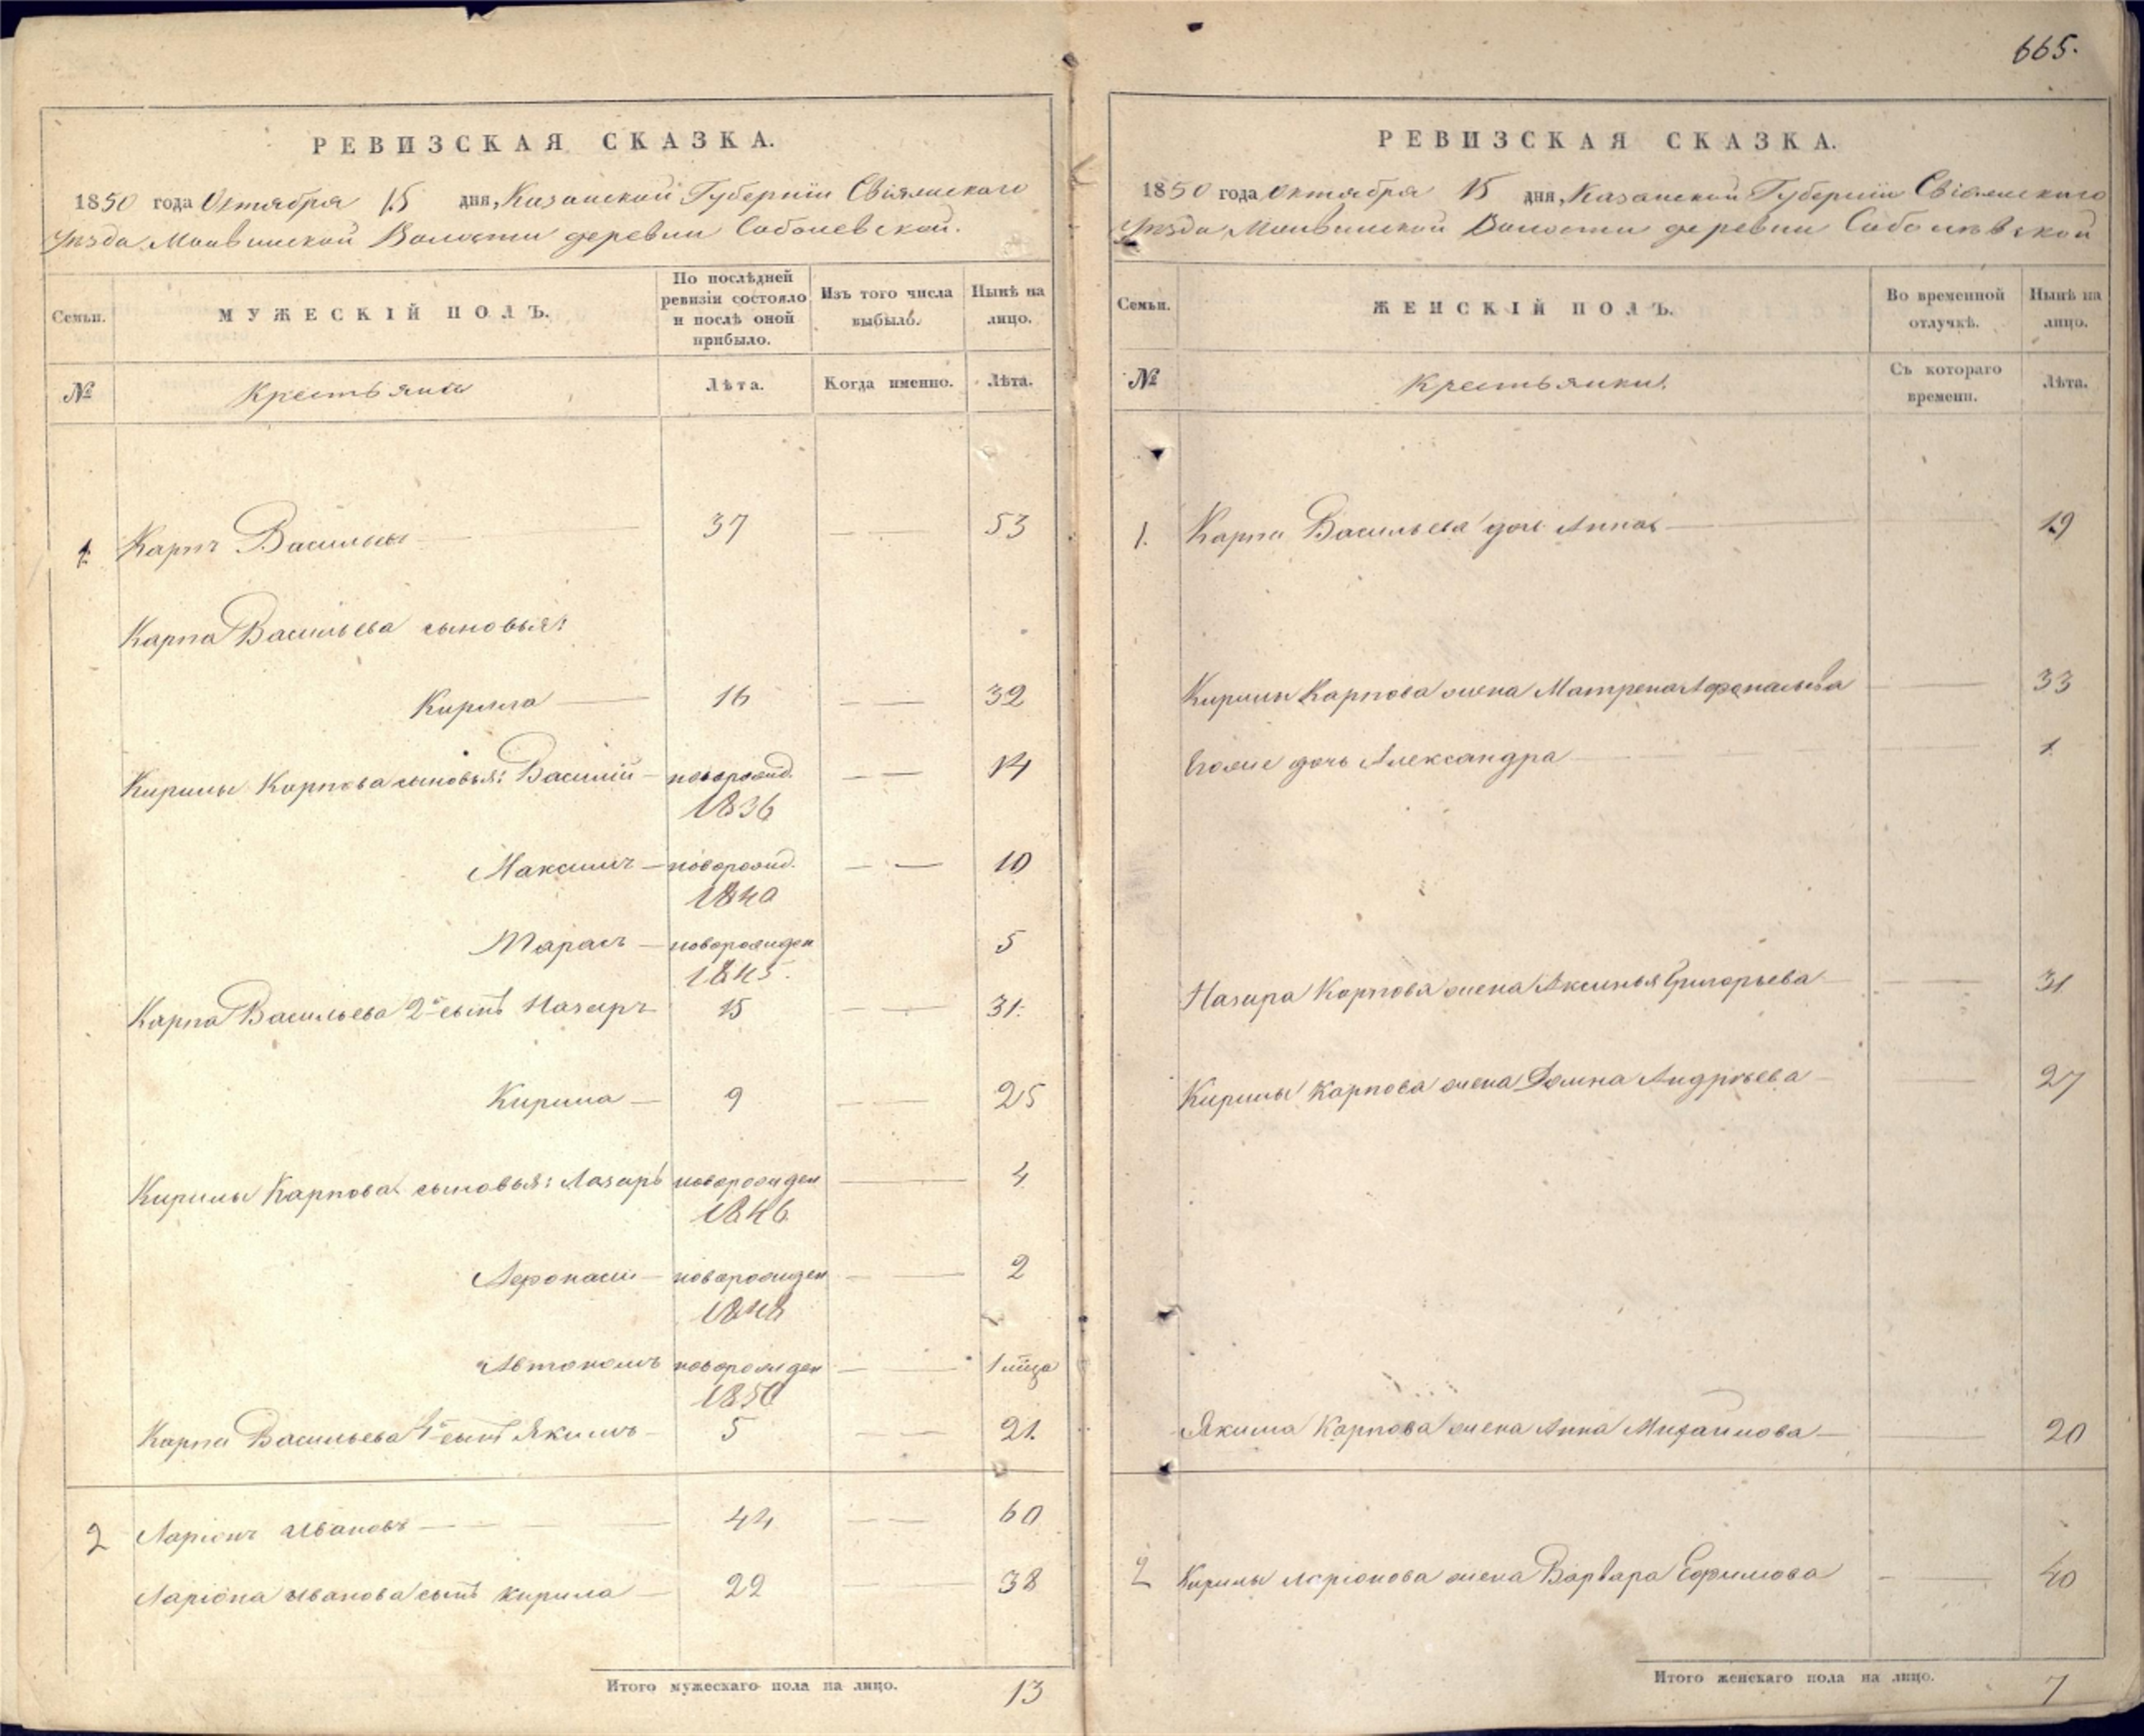 665.
РЕВИЗСКАЯ СКАЗКА.
1850 года Октября 15 дня, Казанской Губерніи Свіяжскаго
Уѣзда, Волости деревни Соболевской.
Семьи.
МУЖЕСКІЙ ПОЛЪ.
По послѣдней
ревизіи состояло
и послѣ оной
прибыло.
Изъ того числа
выбыло.
Нынѣ на
лицо.
№
Крестьяне
Лѣта.
Когда именно.
Лѣта.
1. Карпъ Васильевъ — 37 — — 53
Карпа Васильева сыновья:
Кирила — 16 — — 32
Кирилы Карпова сыновья: Василій — новорожд. — — 14
1836
Максимъ — новорожд. — — 10
1840
Тарасъ — новорожден 5
1845.
Карпа Васильева 2й сынъ Назаръ 15 — — 31.
Кирила — 9 — — 25
Кирилы Карпова сыновья: Лазарь новорожден — 4
1846
Афонасій — новорожден — — 2
1848
Автономъ новорожден — — 1 мѣсца
1850
Карпа Васильева 4й сынъ Якимъ — 5 — — 21.
2 Ларіонъ Ивановъ — — 44 — — 60
Ларіона Иванова сынъ Кирила — 22 — — 38
Итого мужескаго пола на лицо. 13
РЕВИЗСКАЯ СКАЗКА.
1850 года Октября 15 дня, Казанской Губерніи Свіяжскаго
Уѣзда, Волости деревни Соболевской
Семьи.
ЖЕНСКІЙ ПОЛЪ.
Во временной
отлучкѣ.
Нынѣ на
лицо.
№
Крестьянки.
Съ котораго
времени.
Лѣта.
1. Карпа Васильева дочь Анна — 19
Кирилы Карпова жена Матрена Афонасьева — 33
Егоже дочь Александра — 1
Назара Карпова жена Аксинья Григорьева — — 31
Кирилы Карпова жена Домна Андреева — 27
Якима Карпова жена Анна Михайлова — 20
2 Кирилы Ларіонова жена Варвара Ефимова — — 40
Итого женскаго пола на лицо. 7